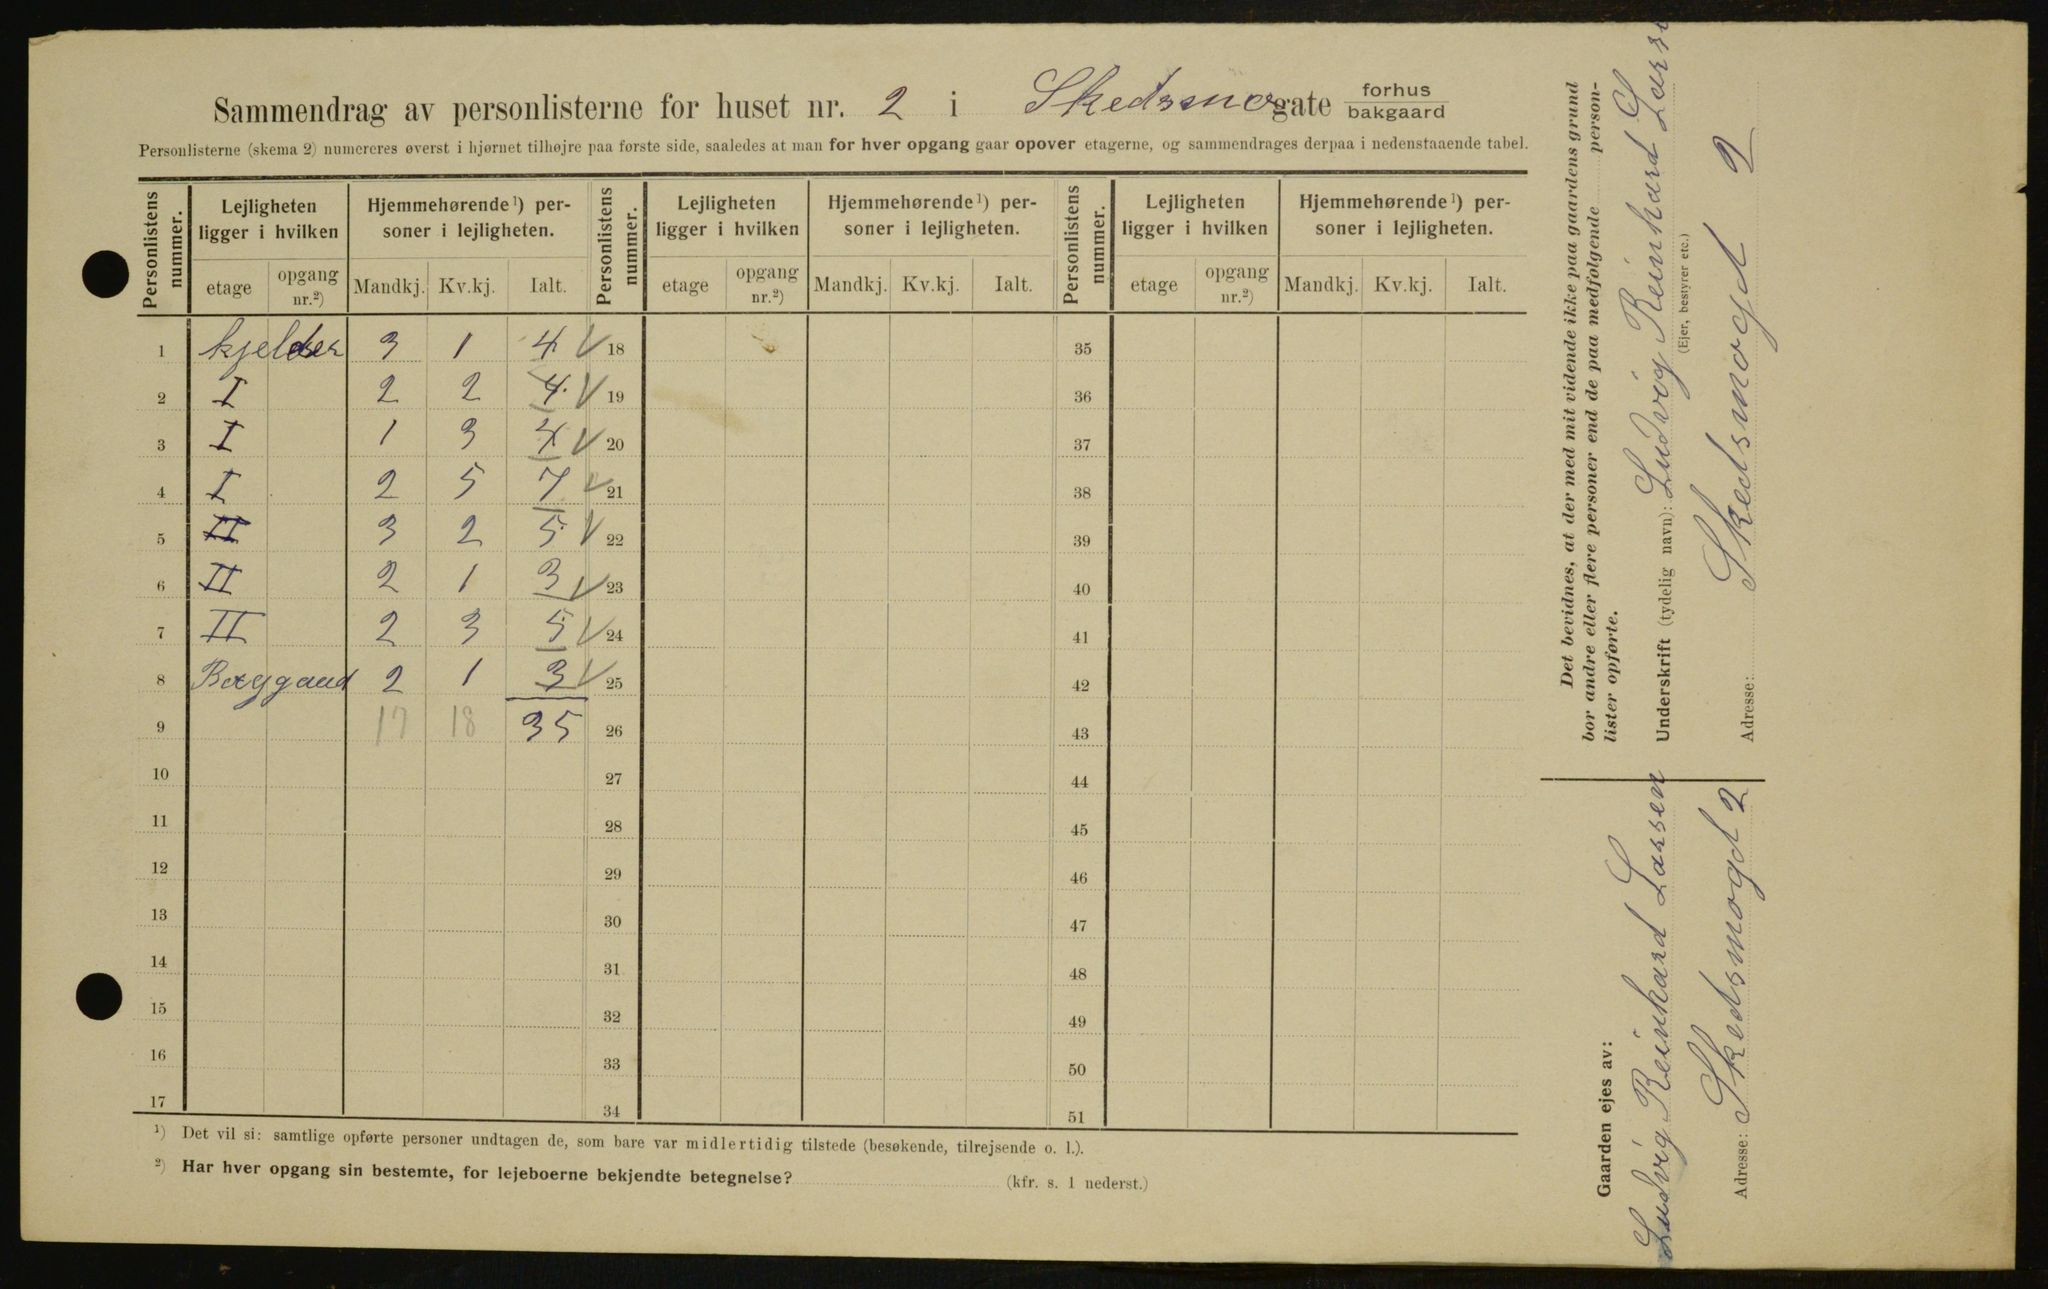 Sammendrag av personlisterne for huset nr. 2 i Skedsmogate forhus
bakgaard
Personlisterne (skema 2) numereres øverst i hjørnet tilhøjre paa første side, saaledes at man for hver opgang gaar opover etagerne, og sammendrages derpaa i nedenstaaende tabel.
Personlistens nummer. Lejligheten ligger i hvilken Hjemmehørende ¹) personer i lejligheten. Personlistens nummer. Lejligheten ligger i hvilken Hjemmehørende ¹) personer i lejligheten. Personlistens nummer. Lejligheten ligger i hvilken Hjemmehørende ¹) personer i lejligheten.
etage opgang nr.²) Mandkj. Kv.kj. Ialt. etage opgang nr.²) Mandkj. Kv.kj. Ialt. etage opgang nr.²) Mandkj. Kv.kj. Ialt.
1 kjelder 3 1 4 ✓ 18 35
2 I 2 2 4 ✓ 19 36
3 I 1 3 4 ✓ 20 37
4 I 2 5 7 ✓ 21 38
5 II 3 2 5 ✓ 22 39
6 II 2 1 3 ✓ 23 40
7 II 2 3 5 ✓ 24 41
8 Baggaard 2 1 3 ✓ 25 42
9 17 18 35 26 43
10 27 44
11 28 45
12 29 46
13 30 47
14 31 48
15 32 49
16 33 50
17 34 51
¹) Det vil si: samtlige opførte personer undtagen de, som bare var midlertidig tilstede (besøkende, tilrejsende o. l.).
²) Har hver opgang sin bestemte, for lejeboerne bekjendte betegnelse? (kfr. s. 1 nederst.)
Det bevidnes, at der med mit vidende ikke paa gaardens grund
bor andre eller flere personer end de paa medfølgende person-
lister opførte.
Underskrift (tydelig navn): Ludvig Reinhard Larse
(Ejer, bestyrer etc.)
Adresse: Skedsmogt 2
Gaarden ejes av:
Ludvig Reinhard Larsen
Adresse: Skedsmogt 2